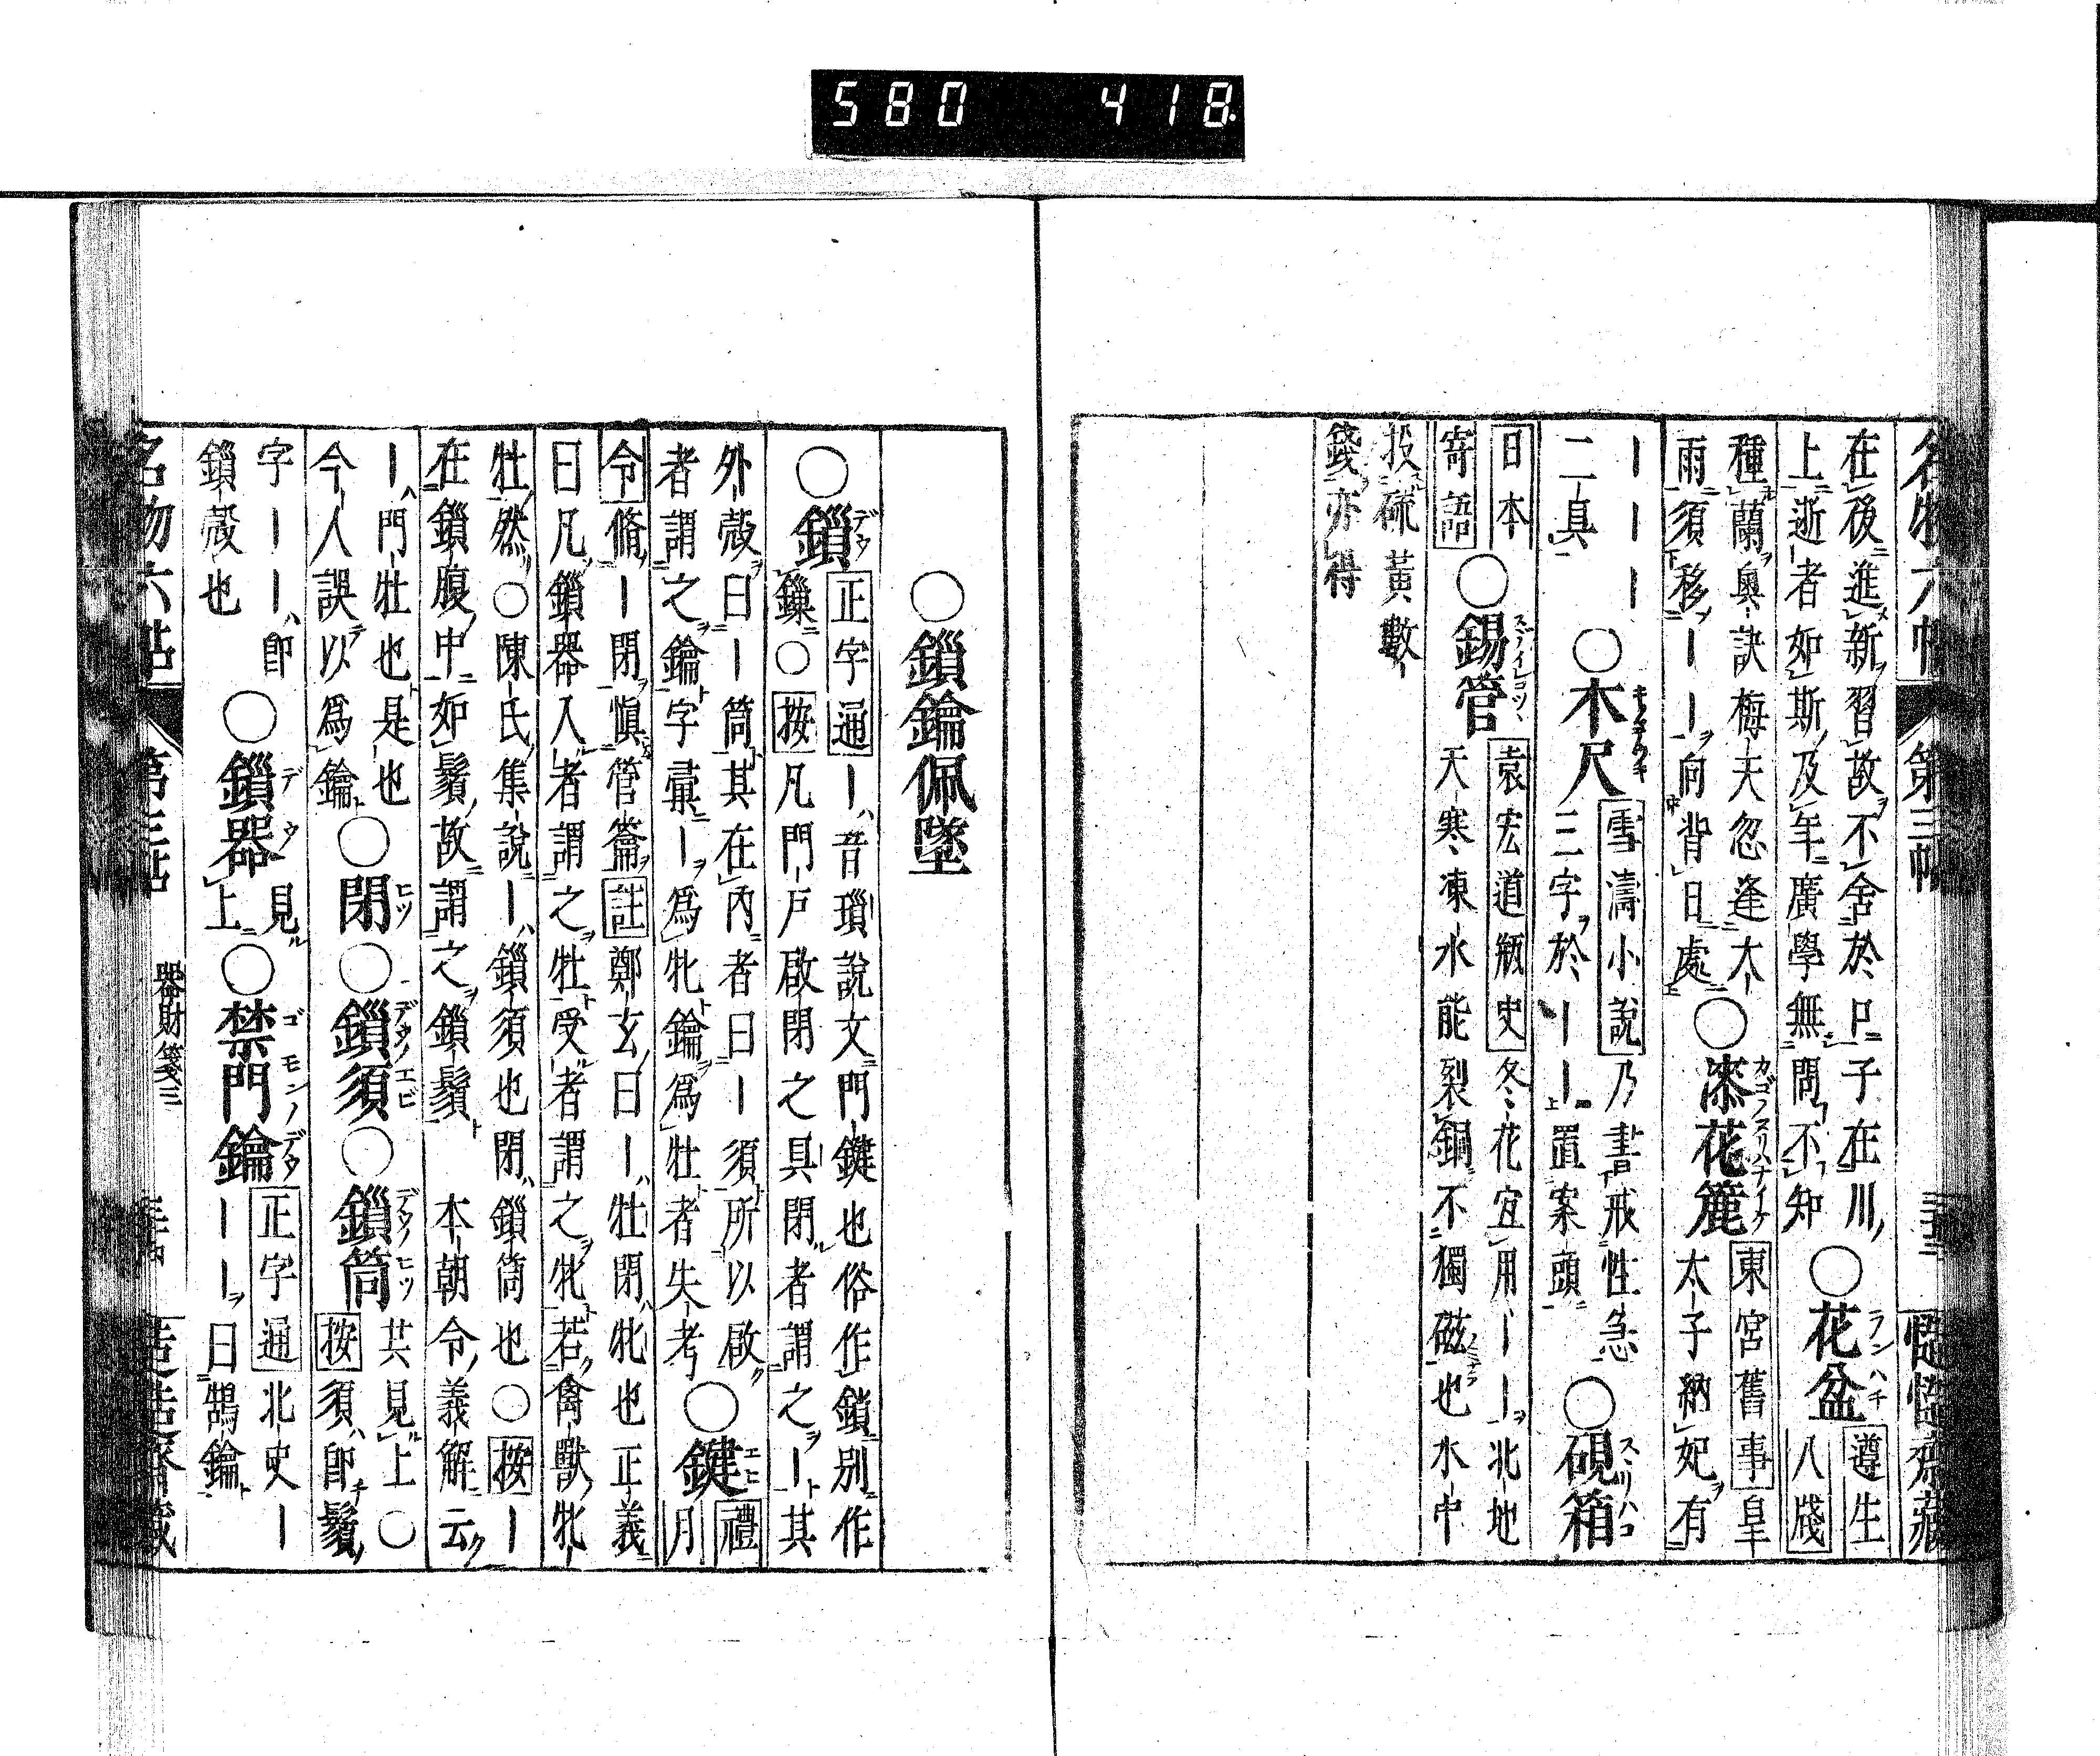 580 418
名物六帖 第三帖
在後進新習故不舍於口子在川
上逝者如斯及年廣學無問不知
○花盆 ランハチ
遵生
八牋
種蘭奧訣梅天忽逢大
雨須移ーー向背日處
○漆花簏
東宮舊事皇
太子納妃有
ーーー
二具
○木尺
雪濤小說乃書戒性急
三字於ーー置案頭
○硯箱 スヽリハコ
日本
寄語
○錫管
袁宏道瓶史冬花宜用ーー北地
天寒凍水能裂銅不獨磁也水中
投硫黃數
錢亦得
○鎖鑰佩墜
○鎖 デウ
正字通ー音瑣說文門鍵也俗作鎖別作
鏁○按凡門戶啟閉之具閉者謂之ー其
外殼曰ー筒其在內者曰ー須所以啟
者謂之鑰字彙ーヲ爲牝鑰爲牡者失考
○鍵 エヒ
禮
月
令脩ー閉愼管籥註鄭玄曰ー牡閉牝也正義
曰凡鎖器入者謂之牡受者謂之牝若禽獸牝
牡然○陳氏集說ー鎖須也閉鎖筒也○按ー
在鎖腹中如鬚故謂之鎖鬚 本朝令義解云
ー門牡也是也
今人誤以爲鑰
○閉 ヒツ
○鎖須 デウノエビ
○鎖筒 デウノヒツ
共見上○
按須卽鬚
字ーー卽
鎖殼也
○鎖器 デウ
見
上
○禁門鑰 ゴモンノデウ
正字通北史ー
ーー曰鵠鑰
名物六帖 第三帖 器財箋三